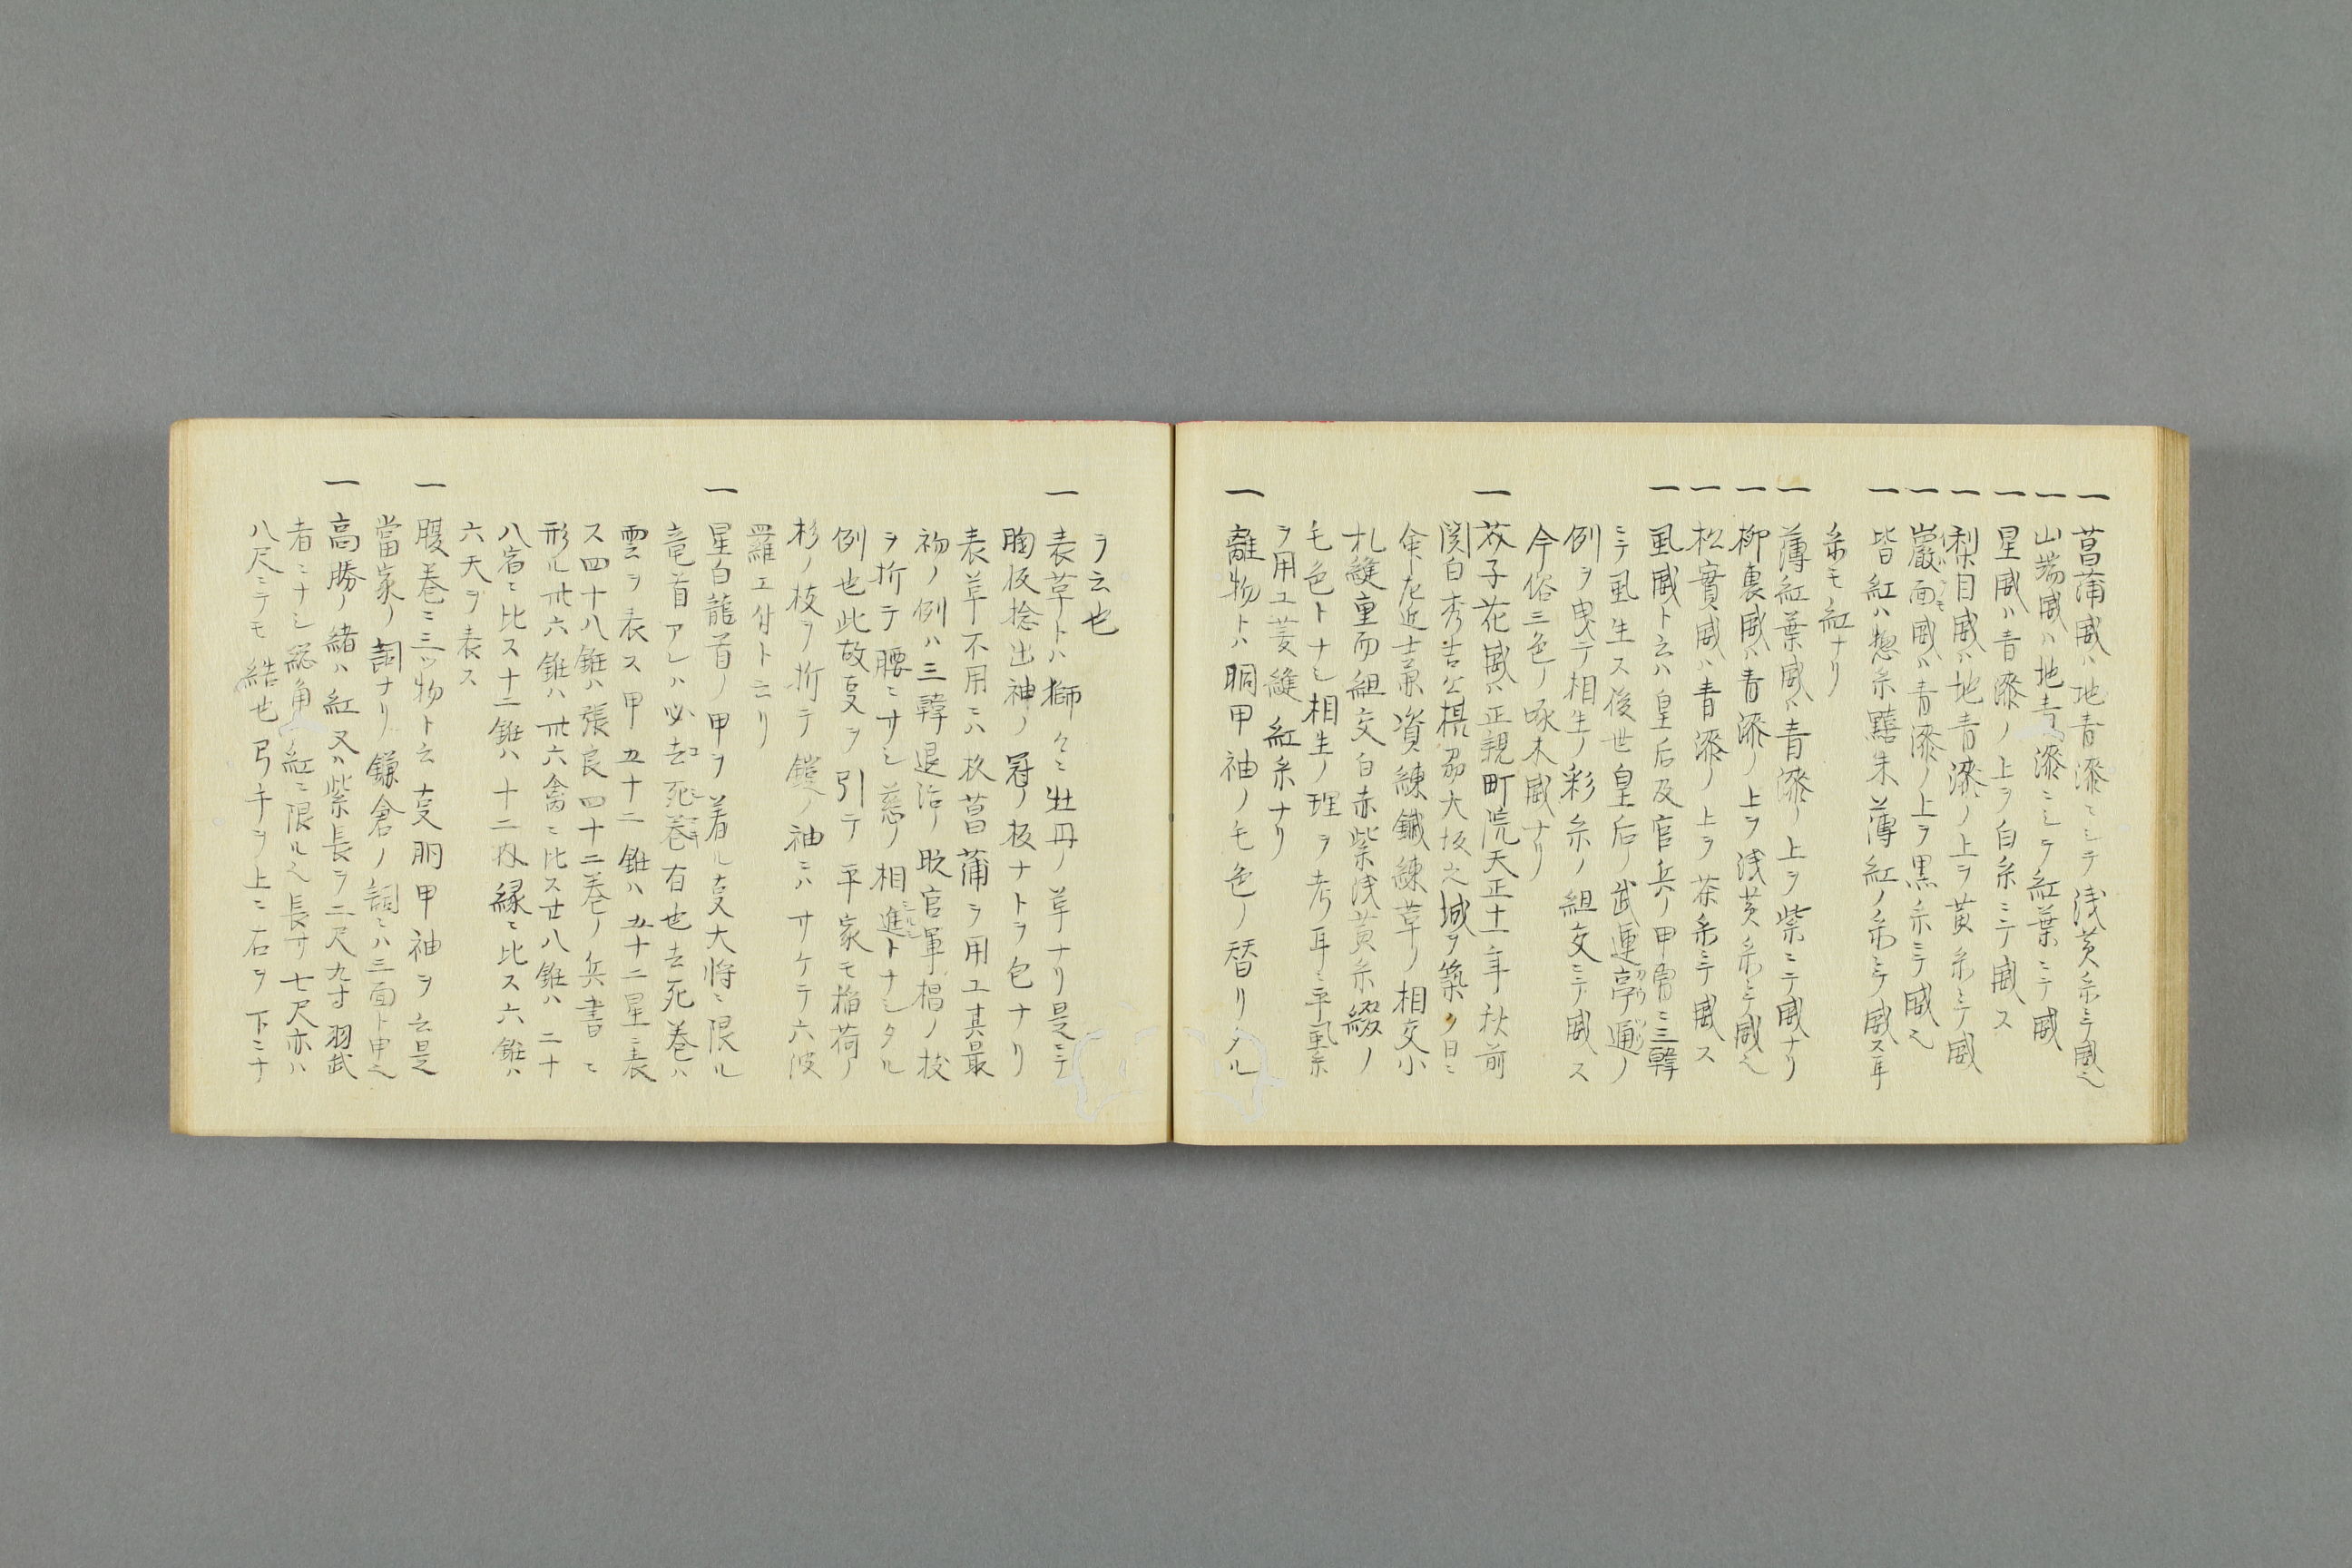 一 菖蒲威ハ地青漆ニシテ浅黄糸ニテ威之
一 山端威ハ地青漆ニシテ紅葉ニテ威
一 星威ハ青漆ノ上ヲ白糸ニテ威ス
一 梨目威ハ地青漆ノ上ヲ黄糸ニテ威
一 巖面威ハ青漆ノ上ヲ黒糸ニテ威之
一 皆紅ハ惣糸 朱薄紅ノ糸ニテ威ス耳
糸モ紅ナリ
一 薄紅葉威ハ青漆ノ上ヲ紫ニテ威ナリ
一 柳裏威ハ青漆ノ上ヲ浅黄糸ニテ威之
一 松實威ハ青漆ノ上ヲ茶糸ニテ威ス
一 虱威ト云ハ皇后及官兵ノ甲冑ニ三韓
ニテ虱生ス後世皇后ノ武運亭通ノ
例ヲ曳テ相生ノ彩糸ノ組交ニテ威ス
今俗三色ノ啄木威ナリ
一 芥子花威ハ正親町院天正十一年秋前
関白秀吉公摂刕大坂之城ヲ築ク日ニ
資練鍼練草ノ相交小
札縫重而組交白赤紫浅黄糸綴ノ
毛色トナシ相生ノ理ヲ考耳ニ平虱糸
ヲ用ユ菱縫紅糸ナリ
一 離物トハ胴甲袖ノ毛色ノ替リタル
ヲ云也
一 表草トハ獅々ニ牡丹ノ草ナリ是ニテ
胸板捻出神ノ冠ノ板ナトヲ包ナリ
表草不用ニハ枚菖蒲ヲ用ユ其最
初ノ例ハ三韓退治ノ時官軍椙ノ枝
ヲ折テ腰ニサシ慈ノ相進トナシタル
例也此故事ヲ引テ平家モ稲荷ノ
杉ノ枝ヲ折テ鎧ノ袖ニハサケテ六波
羅エ付ト云リ
一 星白龍首ノ甲ヲ着ル事大将ニ限ル
竜首アレハ必去死巻有也去死巻ハ
雲ヲ表ス甲五十二錐ハ五十二星ニ表
ス四十八錐ハ張良四十二巻ノ兵書ニ
形ル卅六錐ハ卅六禽ニ比ス廿八錐ハ二十
八宿ニ比ス十二錐ハ十二因縁ニ比ス六錐ハ
六天ヲ表ス
一 腹巻ニ三ツ物ト云事胴甲袖ヲ云是
當家ノ詞ナリ鎌倉ノ詞ニハ三面ト申之
一 高勝ノ緒ハ紅又ハ紫長ヲ二尺九寸羽武
者ニナシ総角ノ紅ニ限ル之長サ七尺亦ハ
八尺ニテモ結也弓手ヲ上ニ右ヲ下ニナ